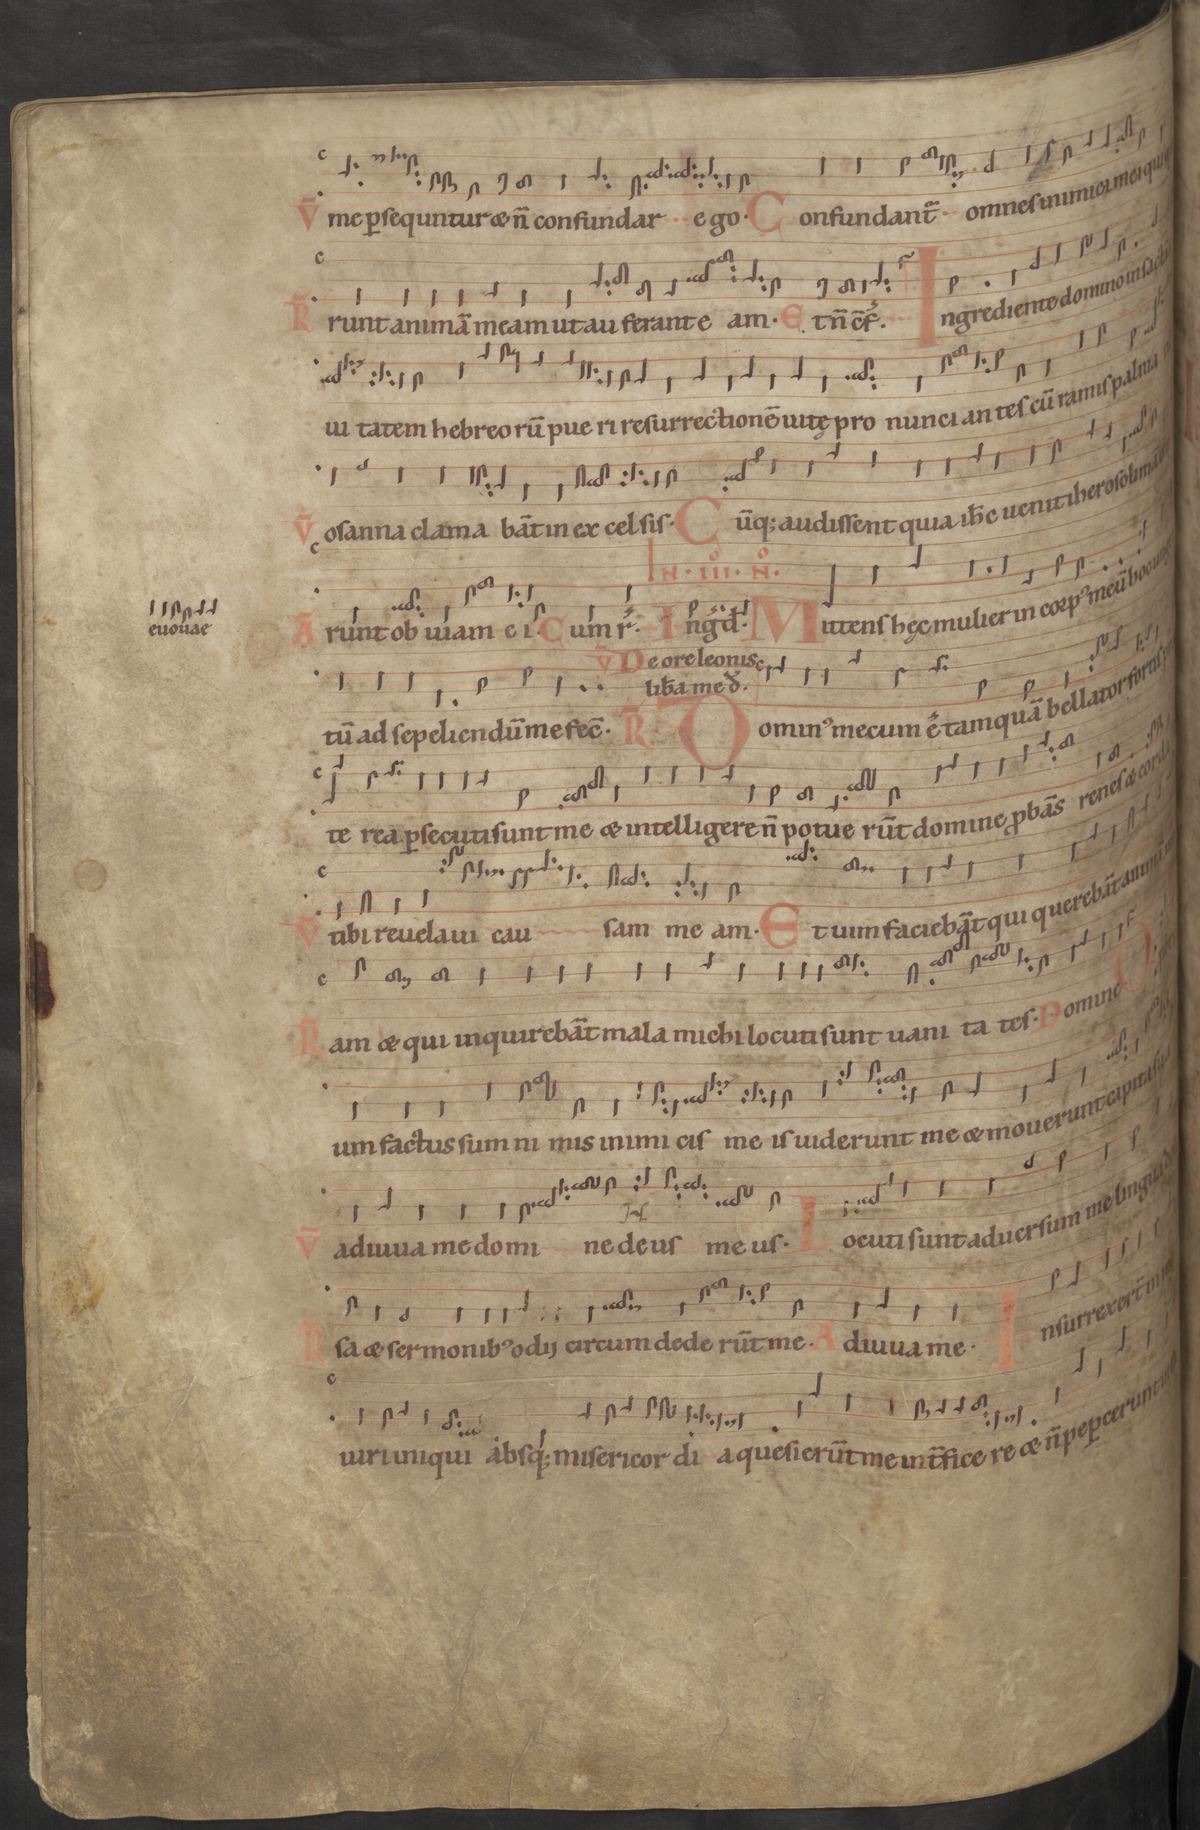 V̄ me ꝑsequntur & n̄ confundar ego. Confundant̄ omnes inimici mei qui
R̄ runt animā meam ut auferant eam. Et n̄ c̄f. Ingrediente domino in sactā
ui tatem hebreorū pueri resurrectionē uitę pro nunciantes cū ramis palma
V̄ osanna clamabāt in excelsis. Cūq; audissent quia ih̄c uenit iherosolimā
IN .III. N̄.
Ā runt obuiam ei. Cum r. Ingd. Mittens hęc mulier in corpꝰ meū hoc
euouae
V̄ De ore leonis
liƀa me d̄.
tū ad sepeliendū me fec̄. R̄ Dominꝰ mecum ē tamquā bellator fortis
te rea ꝑsecuti sunt me & intelligere n̄ potuerūt domine ꝓbās renes & corda
V̄ tibi reuelaui causam meam. Et uim faciebāt qui querebāt animā
R̄ am & qui inquirebāt mala michi locuti sunt uanitates. Domine
um factus sum nimis inimicis meis uiderunt me & mouerunt capita sua
V̄ adiuua me domine deus meus. Locuti sunt aduersum me lingua
R̄ sa & sermonibꝰ odii circumdederūt me. Adiuua me. Insurrexert̄ in me
uiri iniqui absq; misericordia quesierūt me int̄ficere & n̄ peꝑcerunt